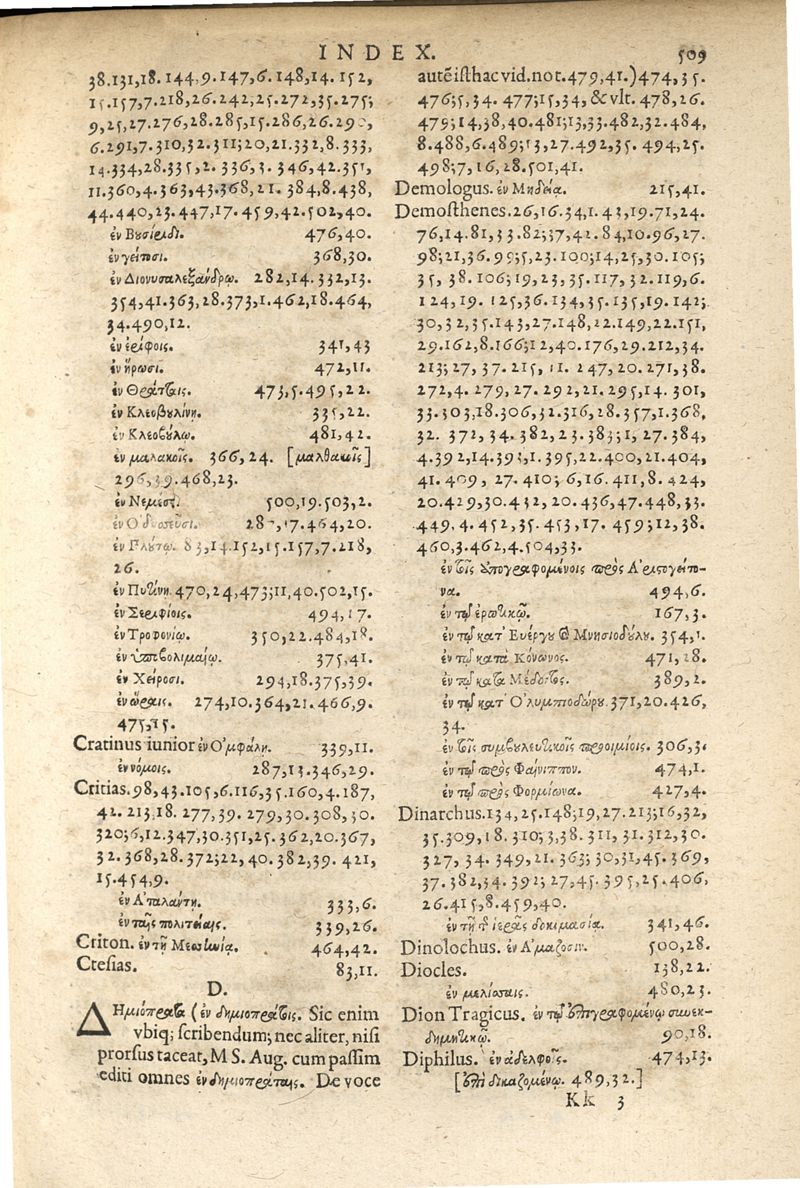 INDEX. 509
38.131,18. 144,9.147,6. 148,14. 152,
15.157,7.218,26.242,25.272,35.275;
9,25,27.276,28.285,15.286,26.290,
6.291,7.310,32.311;20,21.332,8.333,
14.334,28.335,2. 336,3. 346,42.351,
11.360,4.363,43.368,21. 384,8.438,
44.440,23.447,17.459,42.502,40.
ἐν Βυσίριδι. 476,40.
ἐν γείτοσι. 368,30.
ἐν Διονυσαλεξάνδρῳ. 282,14.332,13.
354,41.363,28.373,1.462,18.464,
34.490,12.
ἐν ἐρίφοις. 341,43
ἐν ἥρωσι. 472,11.
ἐν Θρᾴτταις. 473,5.495,22.
ἐν Κλεοβουλίνῃ. 335,22.
ἐν Κλεοβούλῳ. 481,42.
ἐν μαλακοῖς. 366,24. [μαλθακοῖς]
296,39.468,23.
ἐν Νεμέσι. 500,19.503,2.
ἐν Ὀδυσσεῦσι. 464,20.
ἐν Πλούτῳ. 83,14.152,15.157,7.218,
26.
ἐν Πυτίνῃ 470,24,473;11,40.502,15.
ἐν Σεριφίοις. 494,17.
ἐν Τροφονίῳ. 350,22.484,18.
ἐν ὑποβολιμαίῳ. 375,41.
ἐν Χείροσι. 294,18.375,39.
ἐν ὥραις. 274,10.364,21.466,9.
475,15.
Cratinus iunior ἐν Ὀμφάλῃ. 339,11.
ἐν νόμοις. 287,13.346,29.
Critias.98,43.105,6.116,35.160,4.187,
42. 213,18. 277,39. 279,30.308,30.
320;6,12.347,30.351,25.362,20.367,
32.368,28.372;22,40.382,39. 421,
15.454,9.
ἐν Ἀταλάντῃ. 333,6.
ἐν ταῖς πολιτείαις. 339,26.
Criton. ἐν τῇ Μεσσηνίᾳ. 464,42.
Ctesias. 83,11.
D.
ΔΗμιόπρατα (ἐν δημιοπράτοις. Sic enim
vbiq; scribendum; nec aliter, nisi
prorsus taceat, MS. Aug. cum passim
editi omnes ἐν δημιοπράταις. De voce
autē isthac vid. not. 479,41.) 474,35.
476;5,34. 477;15,34, & vlt. 478,26.
479;14,38,40.481;13,33.482,32.484,
8.488,6.489;13,27.492,35. 494,25.
498;7,16,28.501,41.
Demologus. ἐν Μηδείᾳ. 215,41.
Demosthenes.26,16.34,1.43,19.71,24.
76,14.81,33.82;37,42.84,10.96,27.
98;21,36.99;5,23.100;14,25,30.105;
35,38.106;19,23,35.117,32.119,6.
124,19. 125,36.134,35.135,19.142;
30,32,35.143,27.148,22.149,22.151,
29.162,8.166;12,40.176,29.212,34.
213;27,37.215,11. 247,20.271,38.
272,4. 279,27. 292,21. 295,14. 301,
33.303,18.306,32.316,28.357,1.368,
32. 372,34. 382,23.383;1,27.384,
4.392,14.393,1.395,22.400,21.404,
41. 409, 27. 410;6,16.411,8.424,
20.429,30.432,20.436,47.448,33.
449,4.452,35.453,17. 459;12,38.
460,3.462,4.504,33.
ἐν τοῖς ὑπογραφομένοις πρὸς Ἀριστογείτο-
να. 494,6.
ἐν τῷ ἐρωτικῷ. 167,3.
ἐν τῷ κατ' Εὐέργου καὶ Μνησιοδούλου. 354,1.
ἐν τῷ κατὰ Κόνωνος. 471,28.
ἐν τῷ κατὰ Μέδοντος. 389,2.
ἐν τῷ κατ' Ὀλυμπιοδώρου.371,20.426,
34.
ἐν τοῖς συμβουλευτικοῖς προοιμίοις. 306,3.
ἐν τῷ πρὸς Φαίνιππον. 474,1.
ἐν τῷ πρὸς Φορμίωνα. 427,4.
Dinarchus.134,25.148;19,27.213;16,32,
35.309,18. 310;3,38.311,31.312,30.
327, 34. 349,21. 363; 30,31,45.369,
37.382,34.392;27,45.395,25.406,
26.415,8.459,40.
ἐν τῇ τ ἱερᾶς δοκιμασίᾳ. 341,46.
Dinolochus. ἐν Ἀμαζόσιν. 500,28.
Diocles. 138,22.
ἐν μελίσσαις. 480,23.
Dion Tragicus. ἐν τῷ ἐπιγραφομένῳ συνεκ-
δημητικῷ. 90,18.
Diphilus. ἐν ἀδελφοῖς. 474,13.
[ἐπιδικαζομένῳ. 489,32.]
Kk 3